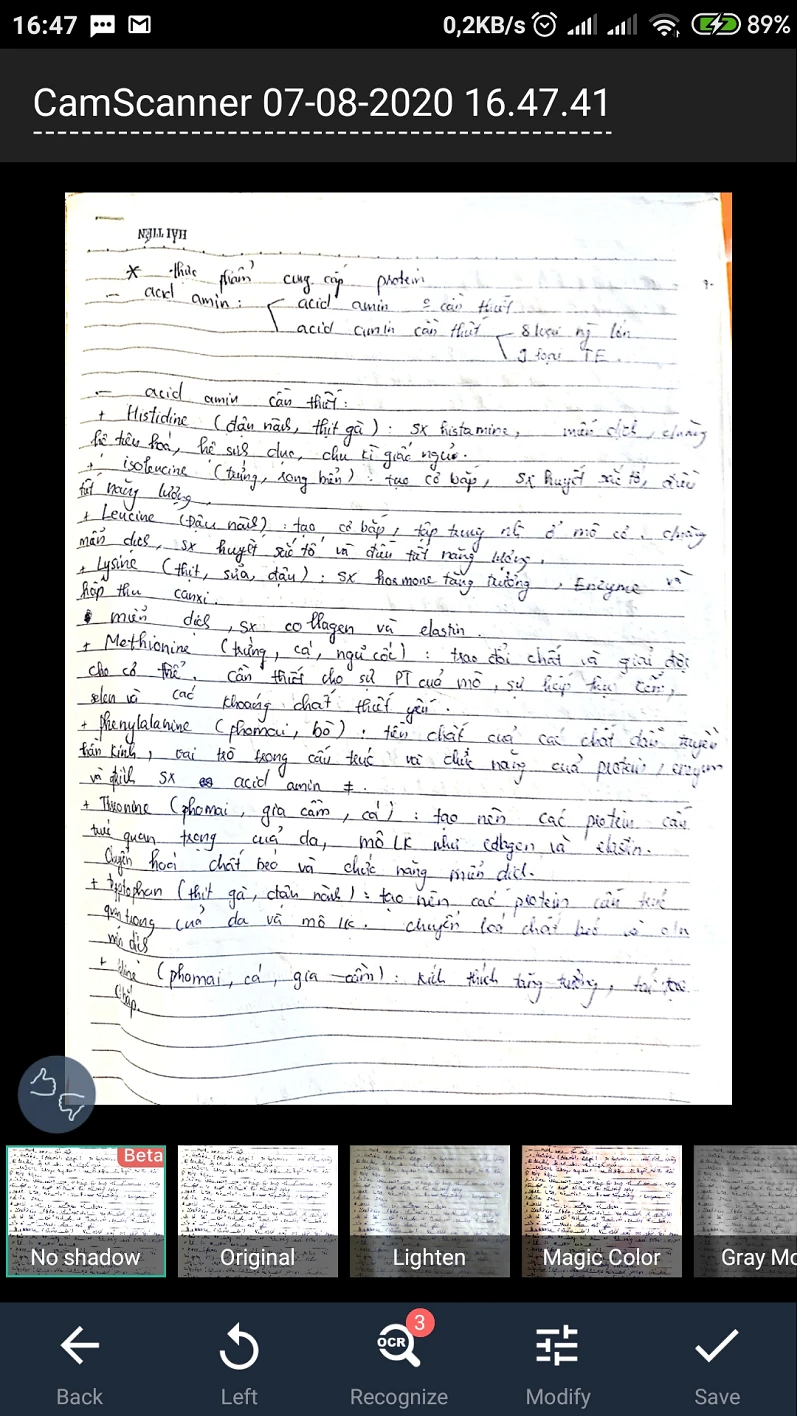 16:47 0,2KB/s 89%
CamScanner 07-08-2020 16.47.41
HẢI TIẾN
* thức phẩm cung cấp protein
- acid amin: acid amin cần thiết
acid amin cần thiết 8 loại ng lớn
9 loại TE.
- acid amin cần thiết:
+ Histidine (đậu nành, thịt gà): sx histamine, miễn dịch,
hệ tiêu hoá, hệ sinh dục, chu kì giấc ngủ.
+ isoleucine (trứng, rong biển): tạo cơ bắp, sx huyết sắc tố, điều
tiết năng lượng.
+ Leucine (Đậu nành): tạo cơ bắp, tập trung ở mô cơ.
miễn dịch, sx huyết sắc tố và điều tiết năng lượng.
+ Lysine (thịt, sữa, đậu): sx hormone tăng trưởng, Enzyme và
hấp thu canxi.
miễn dịch, sx collagen và elastin.
+ Methionine (trứng, cá, ngũ cốc): trao đổi chất và giải độc
cho cơ thể. cần thiết cho sự PT của mô, sự hấp thu kẽm,
selen và các khoáng chất thiết yếu.
+ phenylalanine (phomai, bò): tiền chất của các chất dẫn truyền
thần kinh, vai trò trong cấu trúc và chức năng của protein, enzym
và sx acid amin ≠.
+ Thronine (phomai, gia cầm, cá): tạo nên các protein cấu
trúc quan trọng của da, mô LK như collagen và elasin.
chuyển hoá chất béo và chức năng miễn dịch.
+ tryptophan (thịt gà, đậu nành): tạo nên các protein cấu trúc
quan trọng của da và mô lk. chuyển hoá chất béo và c/n
miễn dịch
+ (phomai, cá, gia cầm): kích thích tăng trưởng, tái tạo
cơ bắp.
Beta
No shadow Original Lighten Magic Color Gray Mo
3
OCR
Back Left Recognize Modify Save